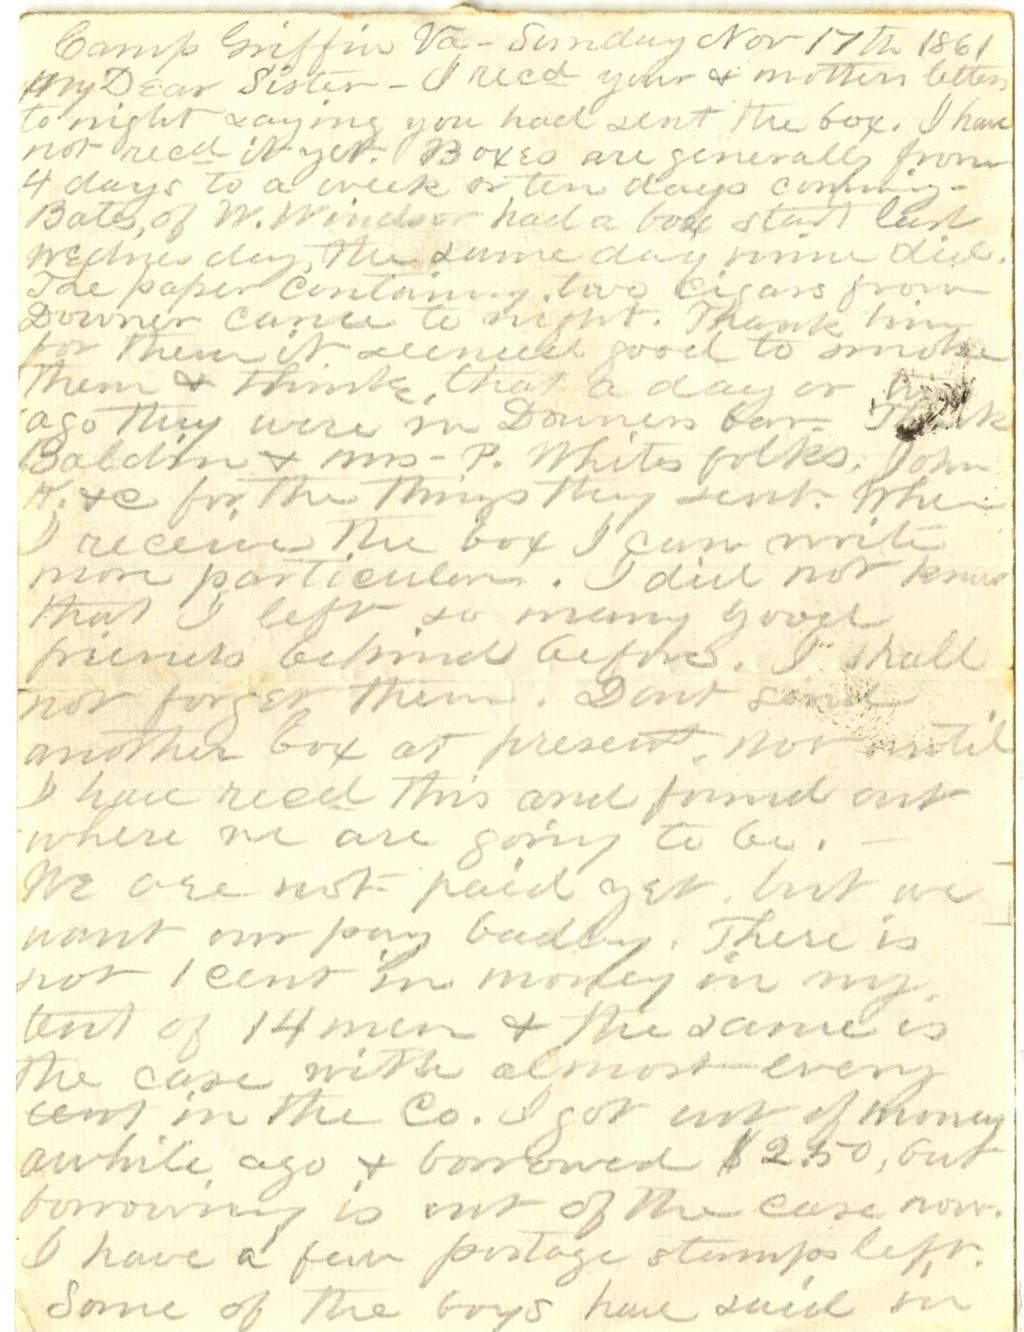 Camp Griffin Va - Sunday Nov 17th 1861
My Dear Sister - I recd your & mothers letters
to night saying you had sent the box. I have
not recd it yet. Boxes are generally from
4 days to a week or ten days coming -
Bates, of W. Windsor had a box start last
Wednesday, the same day mine did.
The paper containing two cigars from
Downer came to night. Thank him
for them it seemed good to smoke
them & think, that a day or
ago they were in Downers bar - Thank
Baldin & Mrs - P. Whites folks, John
K. &c for the things they sent. When
I receive the box I can write
more particulars. I did not know
that I left so many good
friends behind before. I shall
not forget them. Dont send
another box at present, not until
I have recd this and found out
where we are going to be. -
We are not paid yet, but we
want our pay badly. There is
not 1 cent in money in my
tent of 14 men & the same is
the case with almost every
tent in the Co. I got out of money
awhile ago & borrowed $2.50, but
borrowing is out of the case now.
I have a few postage stamps left.
Some of the boys have said in